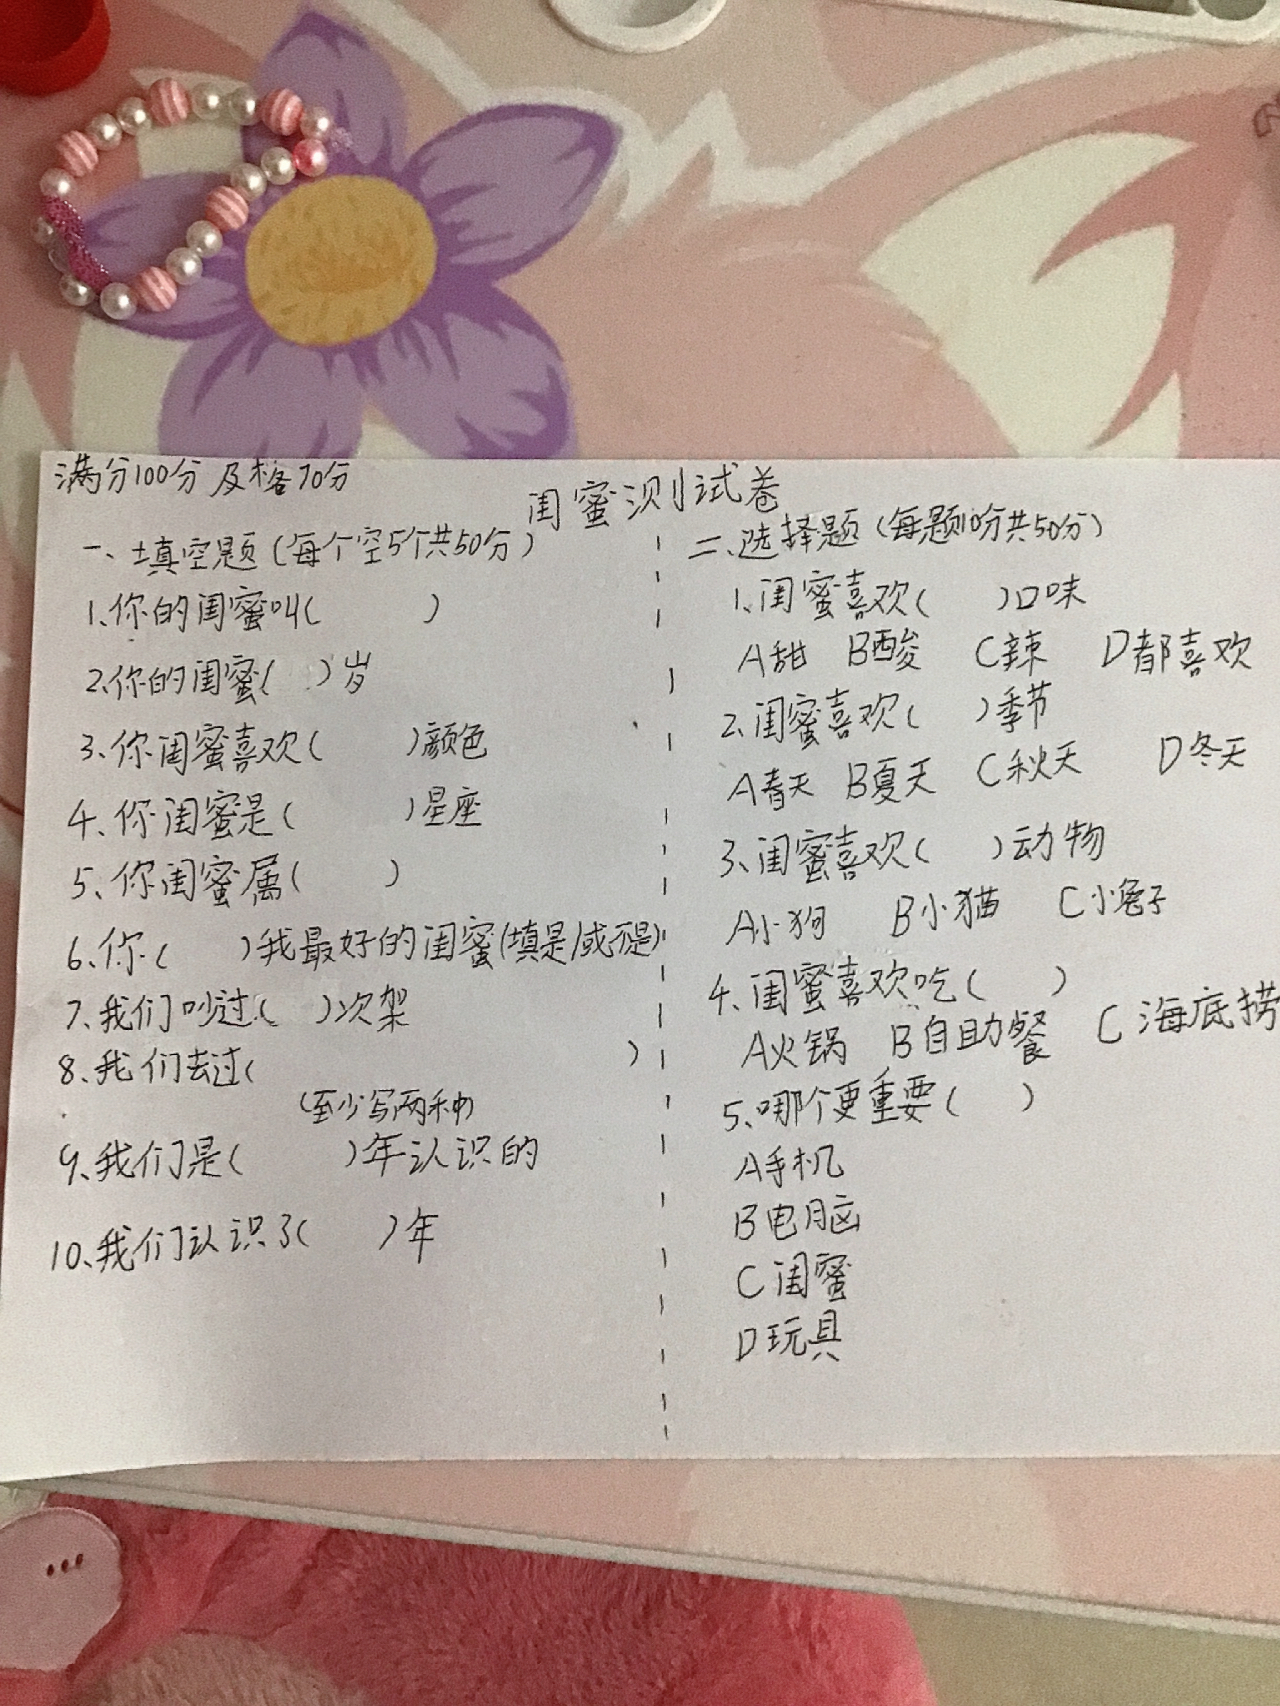 满分100分 及格70分
闺蜜测试卷
一、填空题(每个空5个共50分)
1.你的闺蜜叫( )
2.你的闺蜜( )岁
3.你闺蜜喜欢( )颜色
4.你闺蜜是( )星座
5.你闺蜜属( )
6.你( )我最好的闺蜜(填是/或不是)
7.我们吵过( )次架
8.我们去过( )
(至少写两种)
9.我们是( )年认识的
10.我们认识了( )年
二、选择题(每题10分共50分)
1.闺蜜喜欢( )口味
A甜 B酸 C辣 D都喜欢
2.闺蜜喜欢( )季节
A春天 B夏天 C秋天 D冬天
3.闺蜜喜欢( )动物
A小狗 B小猫 C小兔子
4.闺蜜喜欢吃( )
A火锅 B自助餐 C海底捞
5.哪个更重要( )
A手机
B电脑
C闺蜜
D玩具